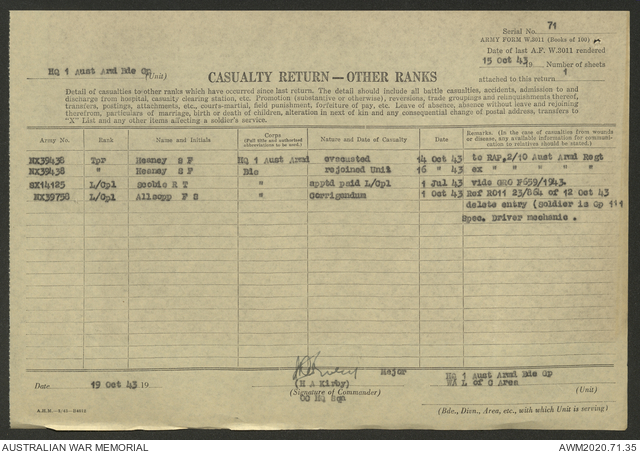 Serial No. 71
ARMY FORM W.3011 (Books of 100)
Date of last A.F. W.3011 rendered
HQ 1 Aust Armd Bde Gp (Unit)
15 Oct 43 19 Number of sheets
CASUALTY RETURN—OTHER RANKS
attached to this return 1
Detail of casualties to other ranks which have occurred since last return. The detail should include all battle casualties, accidents, admission to and
discharge (from hospital, casualty clearing station, etc. Promotion (substantive or otherwise), reversions, trade groupings and relinquishments thereof,
transfers, postings, attachments, etc., courts-martial, field punishment, forfeiture of pay, etc. Leave of absence, absence without leave and rejoining
therefrom, particulars of marriage, birth or death of children, alteration in next of kin and any consequential change of postal address, transfers to
"X" List and any other items affecting a soldier's service.
Army No. Rank Name and Initials Corps (Full title and authorised abbreviations to be used.) Nature and Date of Casualty Date Remarks. (In the case of casualties from wounds or disease, any available information for communication to relatives should be stated.)
NX39438 Tpr Heaney S F HQ 1 Aust Armd evacuated 14 Oct 43 to RAP, 2/10 Aust Armd Regt
NX39438 " Heaney S F Bde rejoined Unit 16 " 43 ex " " " " "
SX14125 L/Cpl Scobie R T " apptd paid L/Cpl 1 Jul 43 vide GRO F659/1943.
NX39758 L/Cpl Allsopp F S " Corrigendum 1 Oct 43 Ref RO11 23/864 of 12 Oct 43
delete entry (soldier is Gp 111
Spec. Driver mechanic .
Major
HQ 1 Aust Armd Bde Gp
Date 19 Oct 43 19
(H A Kirby)
WA L of C Area
(Signature of Commander)
(Unit)
OC HQ Sqn
(Bde., Divn., Area, etc., with which Unit is serving)
AUSTRALIAN WAR MEMORIAL
AWM2020.71.35